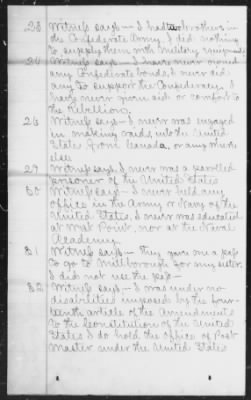 23 Witness says - I had two brothers in
the Confederate Army, I did nothing
to supply them with Military equipments
24 Witness says - I have never owned
any Confederate bonds, I never did
any to support the Confederacy. I
have never given aid or comfort to
the Rebellion.
26 Witness says - I never was engaged
in making raids into the United
States from Canada, or any where
else
29 Witness says, I never was a parolled
prisoner of the United States
30 Witness says - I never held any
office in the Army or Navy of the
United States, I never was educated
at West Point, nor at the Naval
Academy
31 Witness says - They gave me a pass
to go to Millborough for my sister
I did not use the pass -
32 Witness says, - I was under no
disabilities imposed by the four-
teenth article of the Amendments
to the Constitution of the United
States I do hold the office of Post
Master under the United States